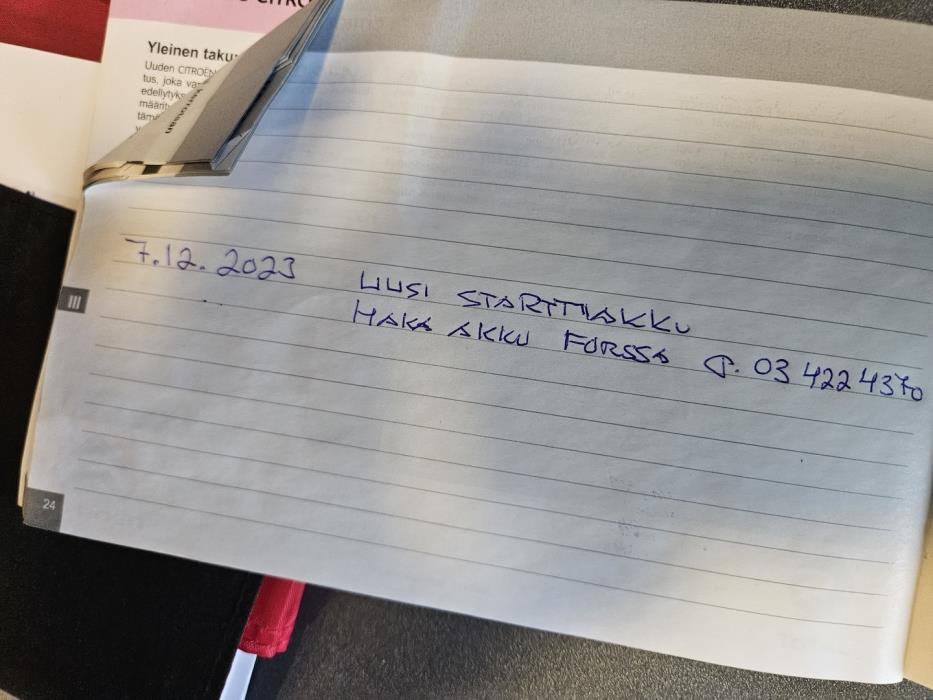 Yleinen taku
Uuden CITROËN
tus, joka
edellytyks
7.12.2023 UUSI STARTTIAKKU
HAKA AKKU FORSSA P. 03 422 4370
III
24